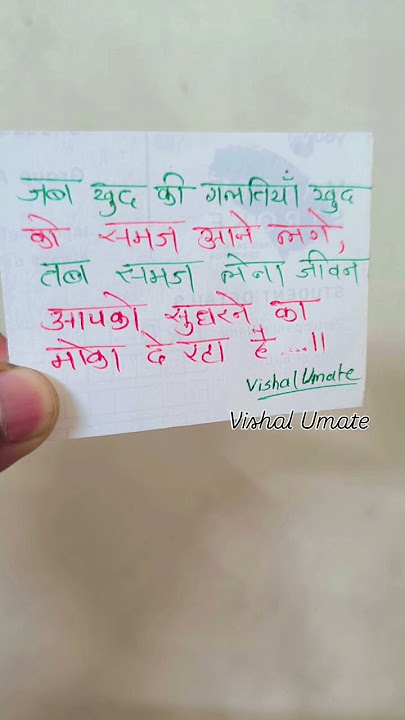 जब खुद की गलतियाँ खुद
को समज आने लगे,
तब समज लेना जीवन
आपको सुधरने का
मोका दे रहा है ....।।
Vishal Umate
Vishal Umate